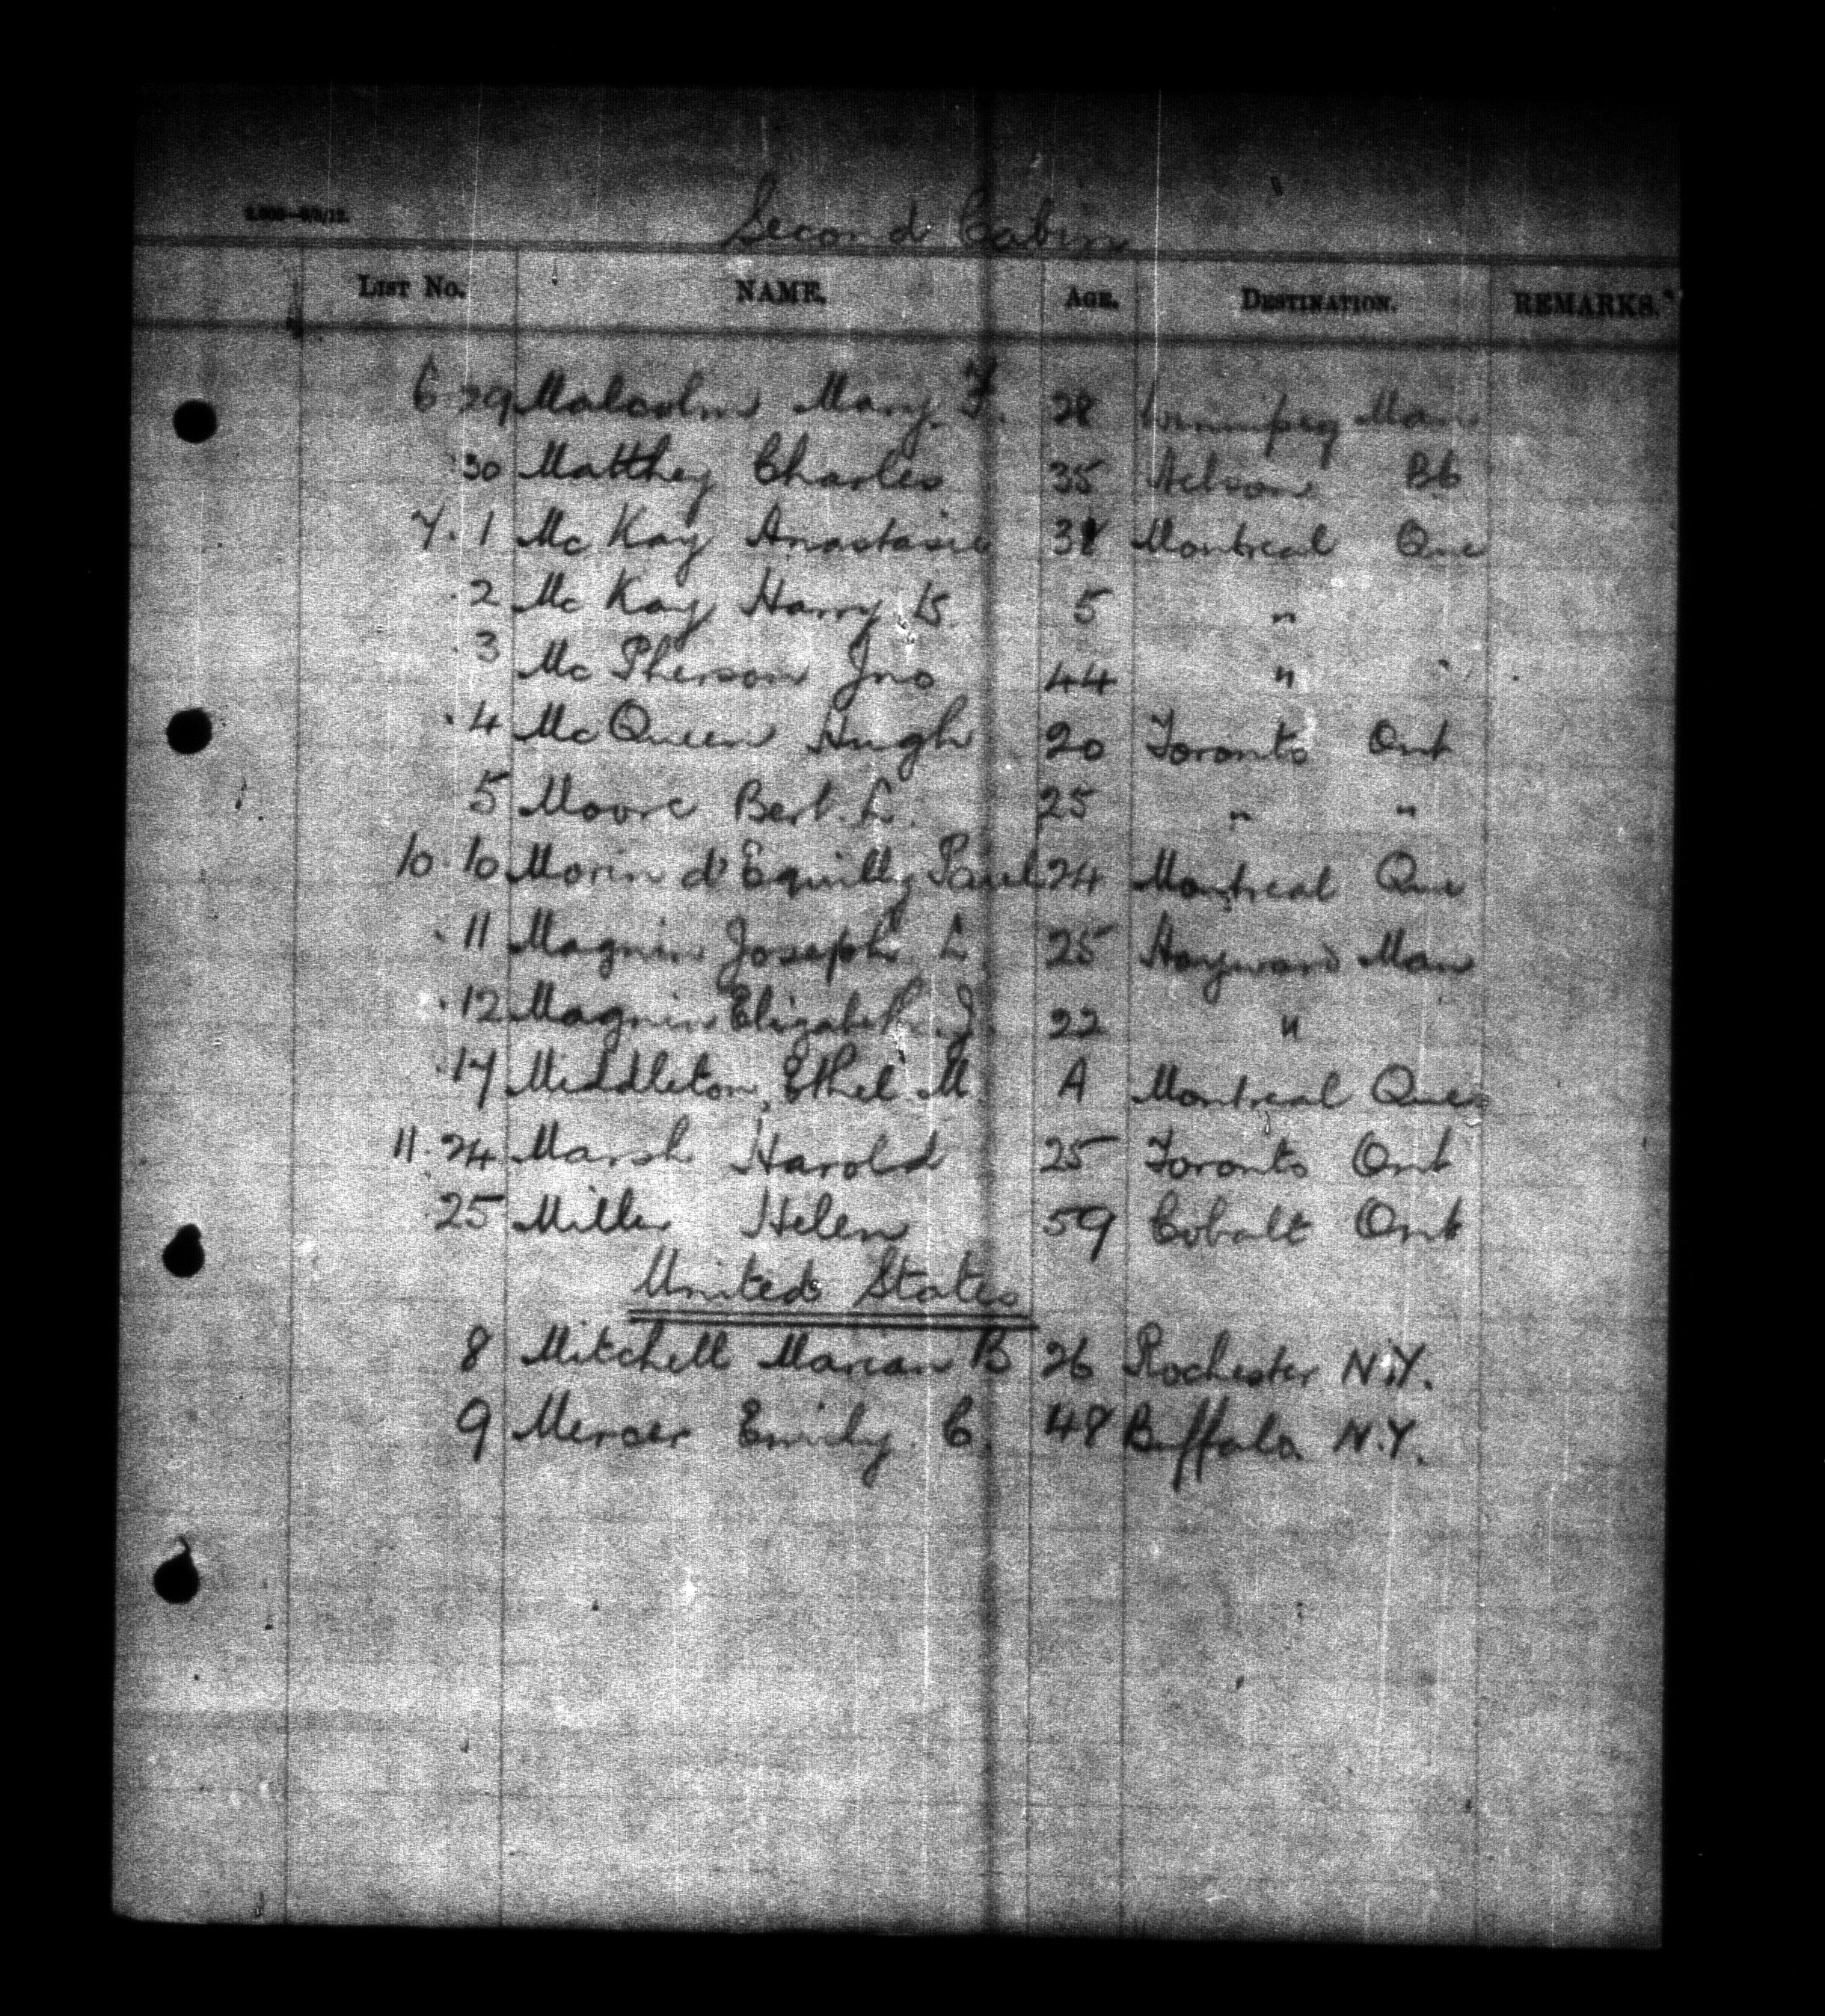 Second Cabin
List No. NAME. Age. Destination. REMARKS.
6.29 Malcolm Mary. F. 28 Winnipeg Man
.30 Matthey Charles 35 Nelson BC
7.1 McKay Anastasie Montreal Que
.2 McKay Harry 5 "
.3 McPherson Jno 44 "
.4 McQueen Hugh 20 Toronto Ont
5 Moore Bert. L. 25 " "
10.10 Morin d'Equilly Paul 24 Montreal Que
.11 Magnin Joseph L 25 Hayward Man
.12 Magnin Elizabeth. J. 22 "
.17 Middleton, Ethel M. A Montreal Que
11.24 Marsh Harold 25 Toronto Ont
.25 Miller Helen 59 Cobalt Ont
United States
8 Mitchell Marian B 26 Rochester N.Y.
9 Mercer Emily. C. 48 Buffalo. N.Y.